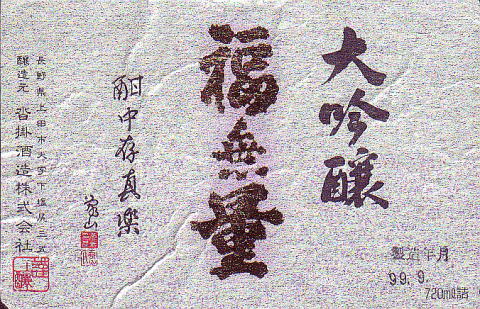 大吟醸
福無量
酣中存真楽
長野県上田市大字下塩尻三五
醸造元 沓掛酒造株式会社
製造年月
99.9.
720ml詰